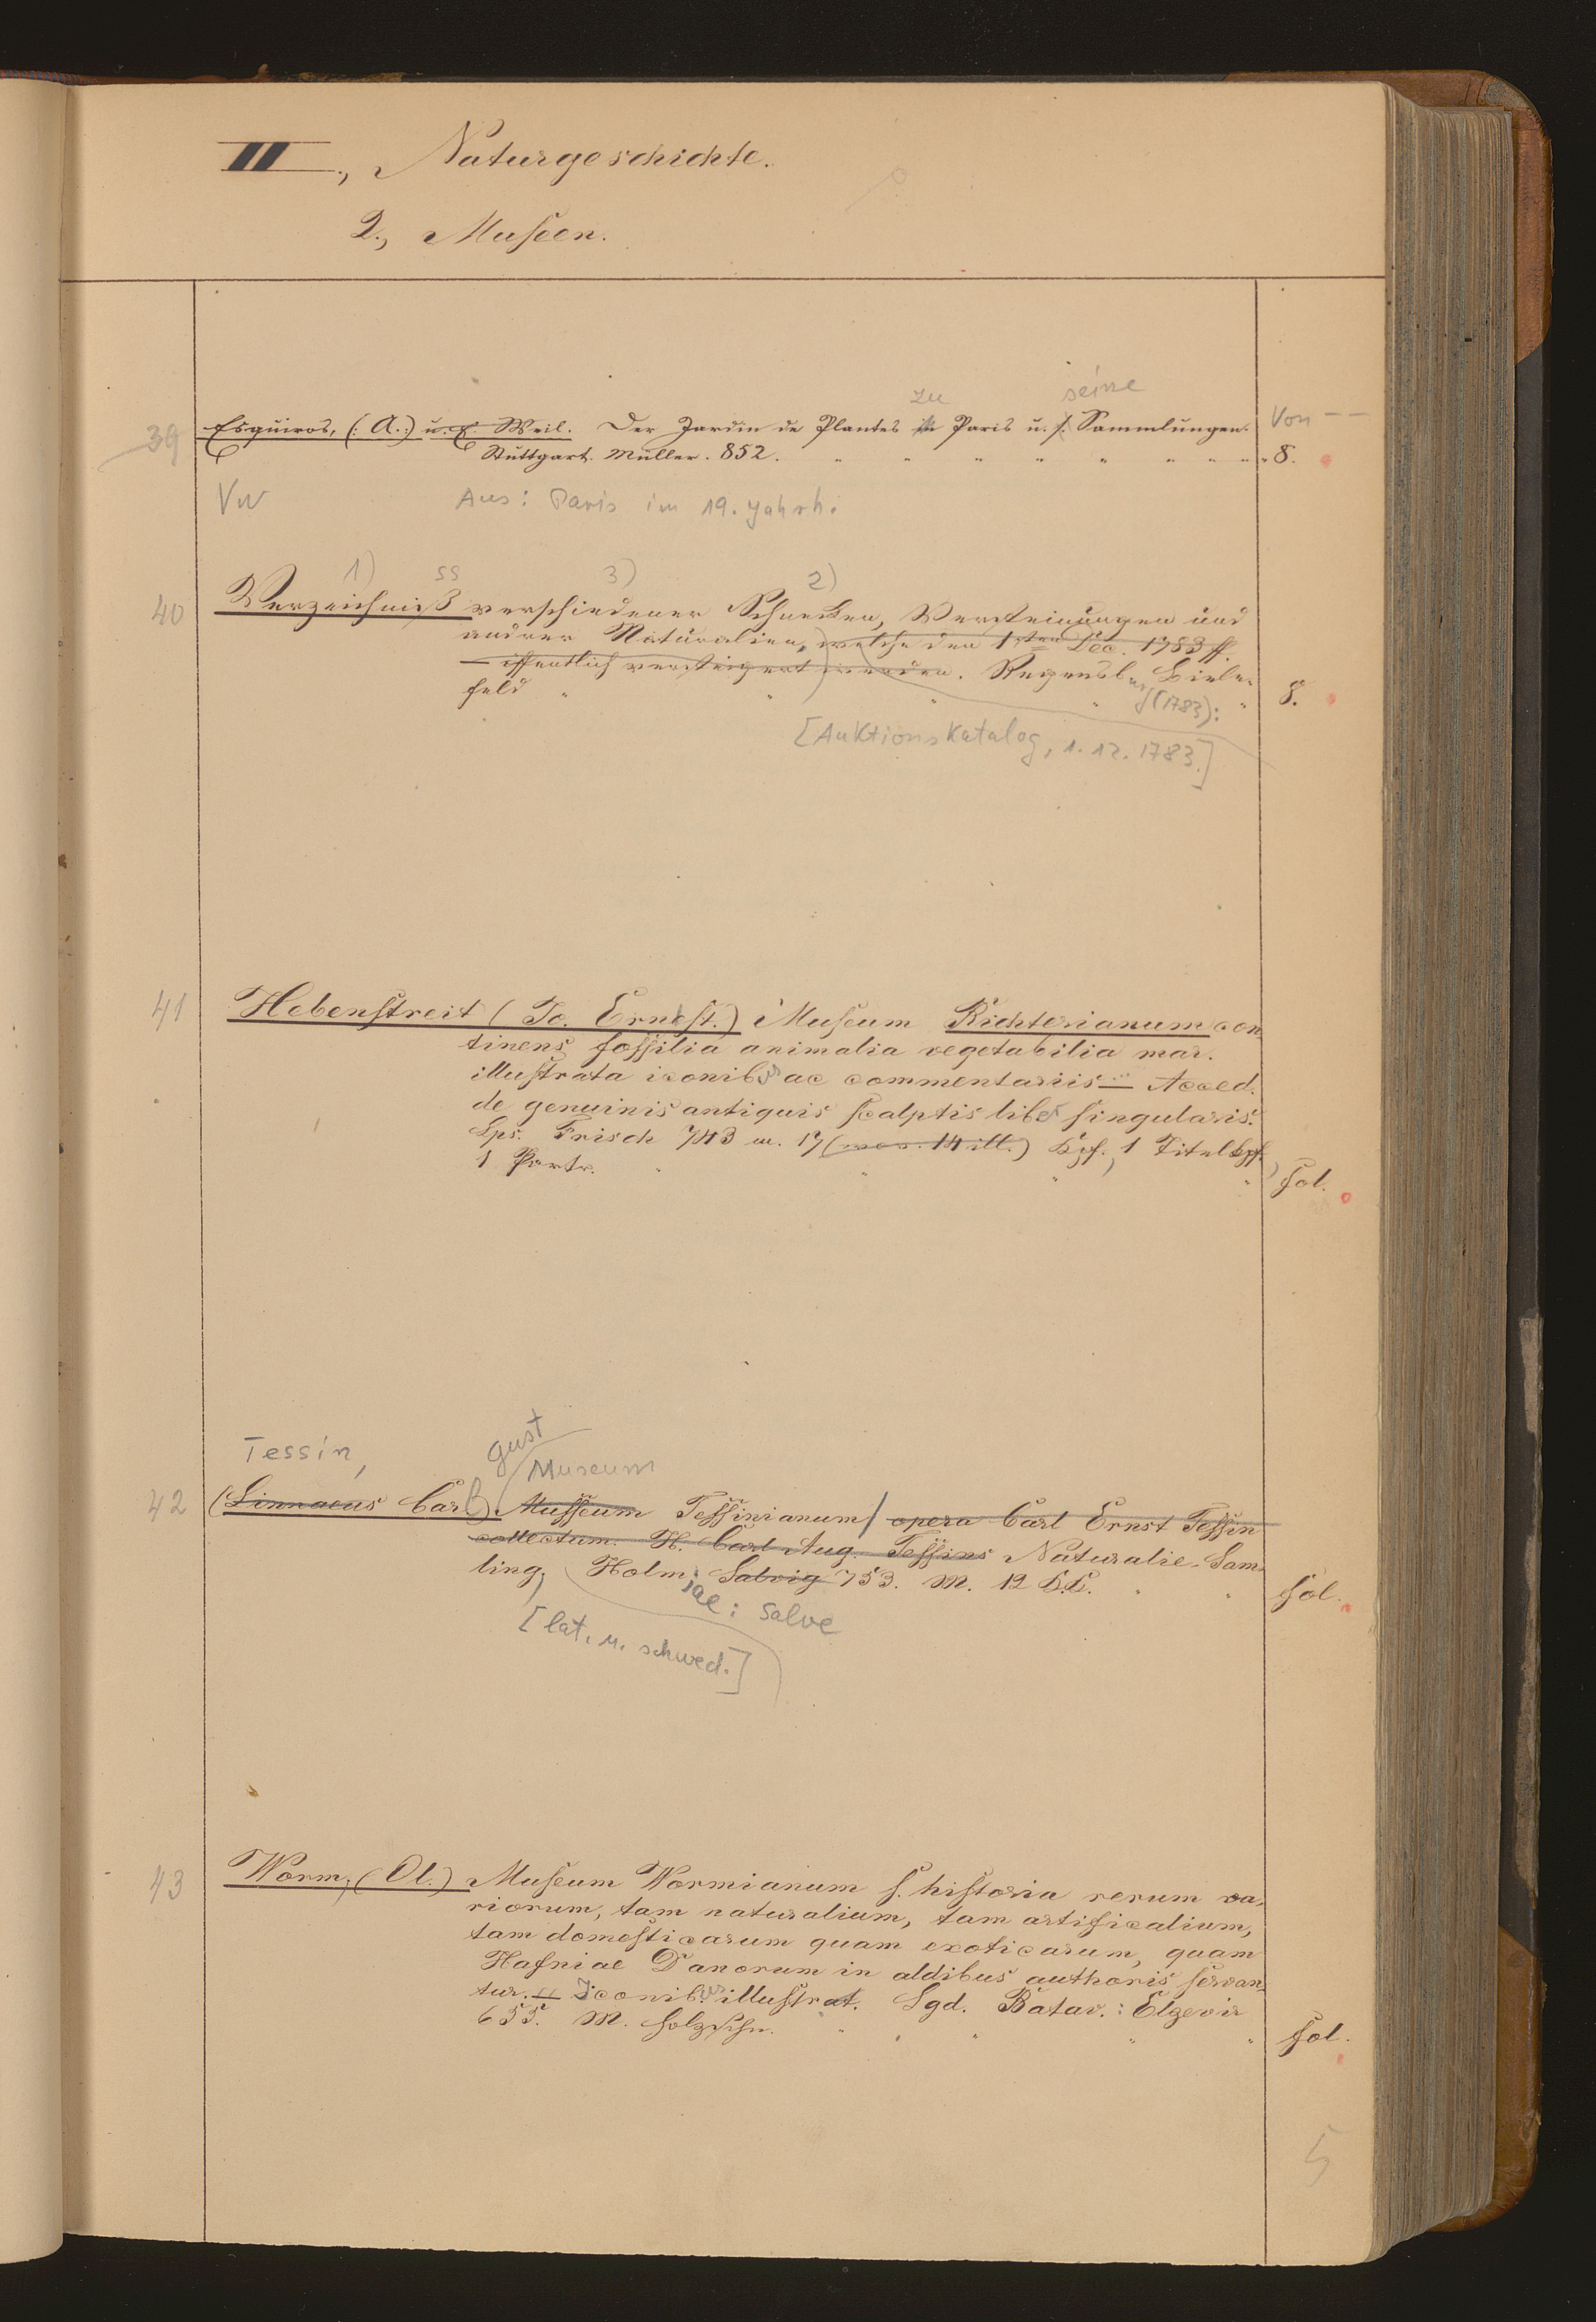 II., Naturgeschichte.
2., Museen.
zu seine
39 Esquiros, (: A.:) u. E. Weil. Der Jardin de Plantes in Paris u. s. Sammlungen. Von --
Stuttgart. Müller. 852. 8.
VW Aus: Paris im 19. Jahrh.
1) ss 3) 2)
40 Verzeichniß verschiedener Schnecken, Versteinungen und
andrer Naturalien, welche den 1sten Dec. 1783 ff.
— öffentlich versteigert werden. Regensburg Biele-
feld (1783): 8.
[Auktionskatalog, 1.12.1783.]
41 Hebenstreit (Jo. Ernest.) Museum Richterianum con-
tinens fossilia animalia vegetabilia mar.
illustrata iconibus ac commentariis ... Acced.
de genuinis antiquis scalptis liber singularis.
Lps. Frisch 743 m. 17 (wov. 14 ill.) Kpf., 1 Titelkpf.,
1 Portr. fol.
Tessin, gust
Museum
42 (Linnaeus Carl). Musseum Tessinianum / opera Carl Ernst Tessin
collectum. H. Carl Aug. Tessins Naturalie-Sam-
ling, Holmiae: Salvig 753. M. 12 KK. fol.
Salve
[lat. u. schwed.]
43 Worm, (Ol.) Museum Wormianum s. historia rerum va-
riorum, tam naturalium, tam artificalium,
tam domesticarum quam exoticarum, quam
Hafniae Danorum in aldibus authoris servan-
tur. — Iconibus illustrat. Lgd. Batav.: Elzevir
655. M. Holzschn. fol.
5